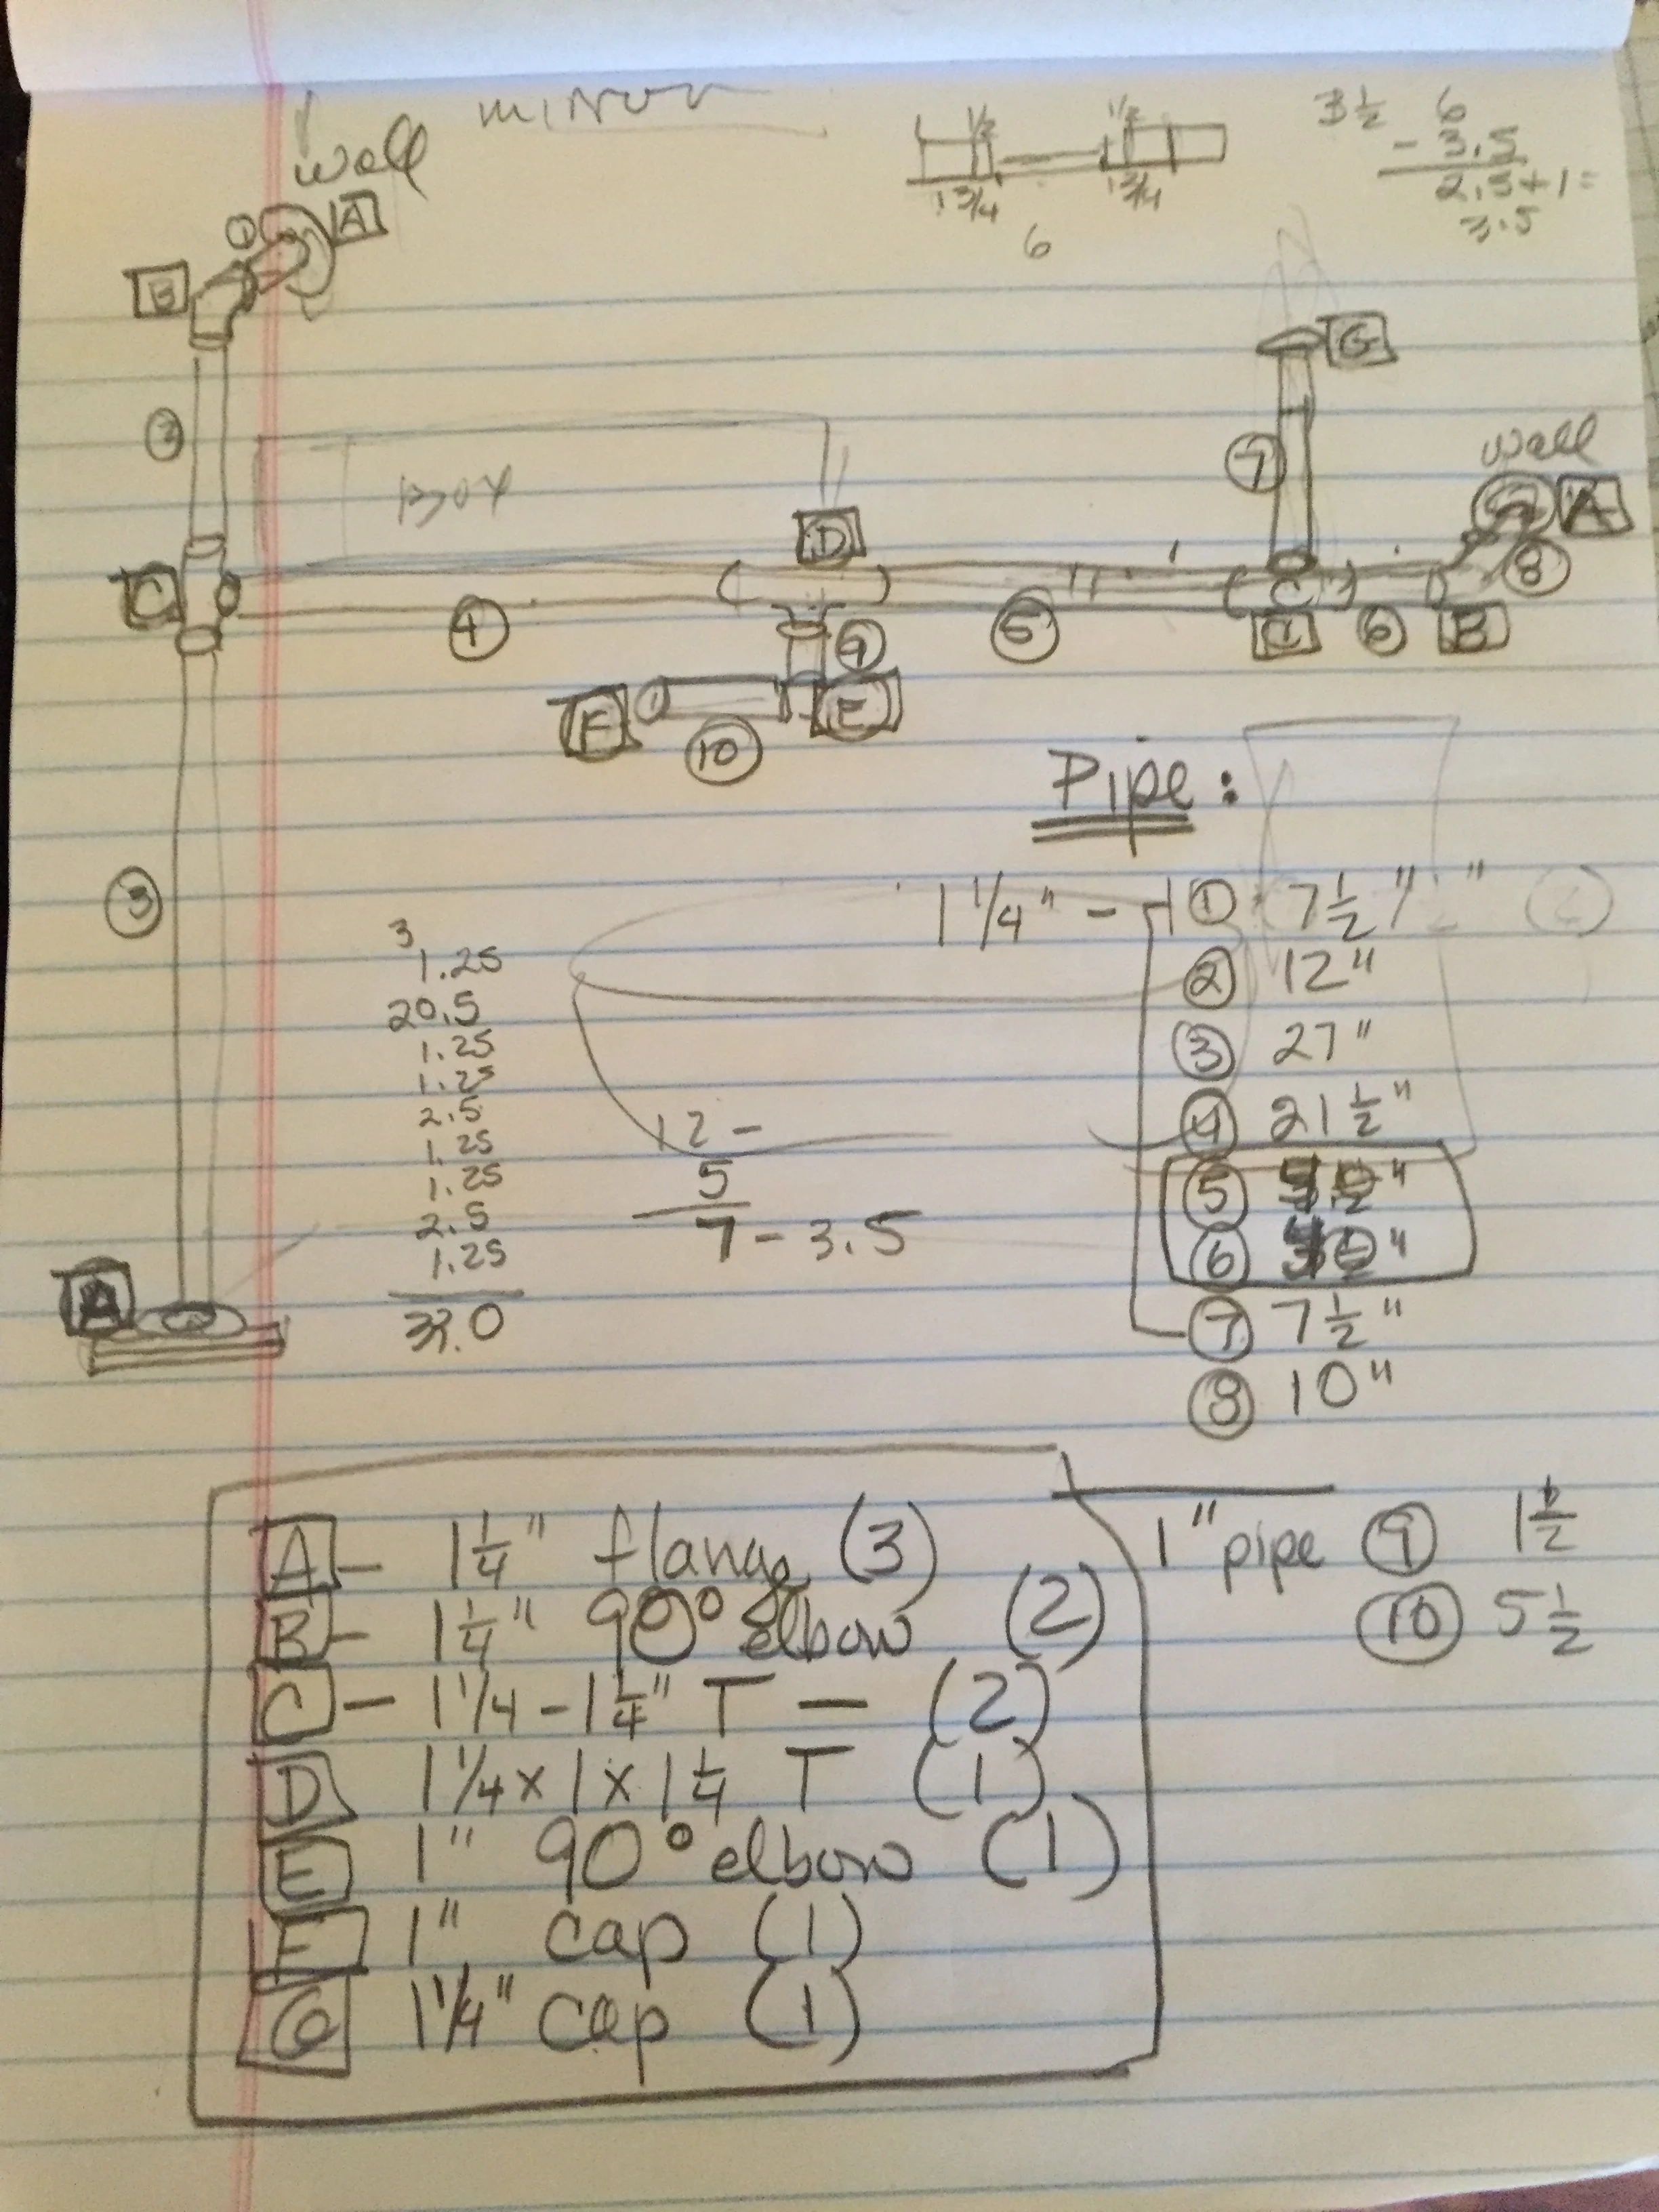 wall
minor
1/2 1/2
1 3/4 1 3/4
6
3 1/2
6
- 3.5
2.5 + 1 =
3.5
1 A
B
G
wall
7
A
8
Box
D
C
4
9
5
C
6
B
F
10
E
3
A
Pipe:
1 1/4" -
1 7 1/2"
2 12"
3 27"
4 21 1/2"
5
6
7 7 1/2"
8 10"
3
1.25
20.5
1.25
1.25
2.5
1.25
1.25
2.5
1.25
12 -
5
7 - 3.5
1" pipe 9 1 1/2
10 5 1/2
A - 1 1/4" flange (3)
B - 1 1/4" 90° elbow (2)
C - 1 1/4 - 1 1/4" T - (2)
D 1 1/4 x 1 x 1 1/4 T (1)
E 1" 90° elbow (1)
F 1" cap (1)
G 1 1/4" cap (1)